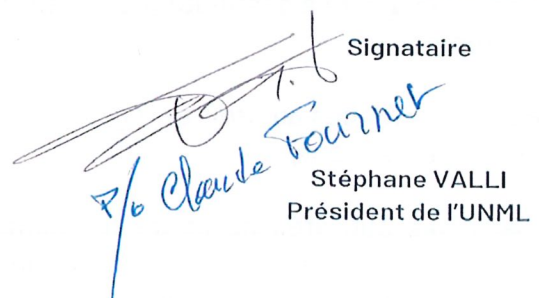 Signataire
P/o Claude Fournet
Stéphane VALLI
Président de l'UNML